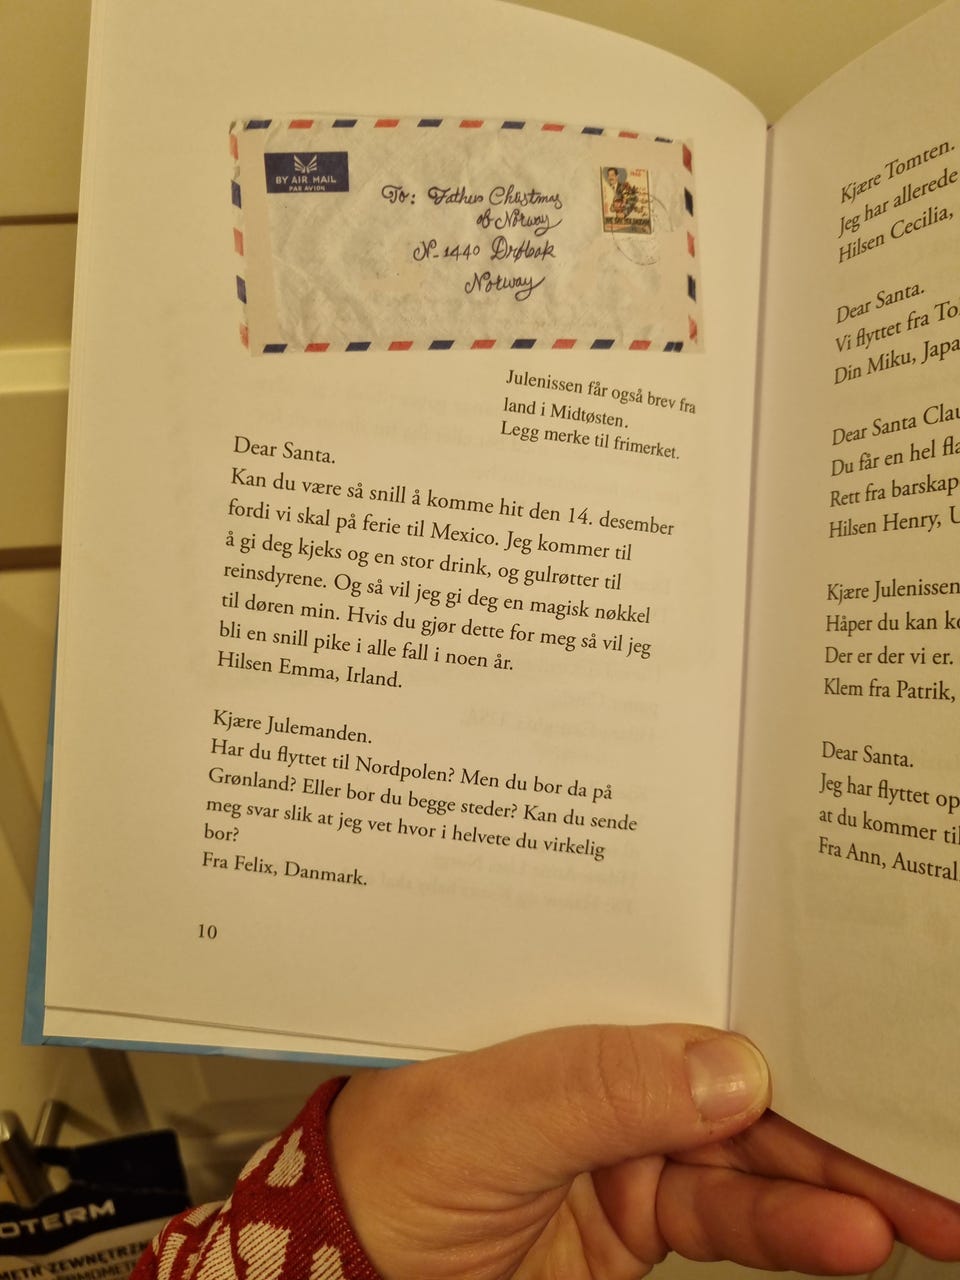 BY AIR MAIL
PAR AVION
To: Father Christmas
of Norway
N-1440 Drøbak
Norway
Julenissen får også brev fra
land i Midtøsten.
Legg merke til frimerket.
Dear Santa.
Kan du være så snill å komme hit den 14. desember
fordi vi skal på ferie til Mexico. Jeg kommer til
å gi deg kjeks og en stor drink, og gulrøtter til
reinsdyrene. Og så vil jeg gi deg en magisk nøkkel
til døren min. Hvis du gjør dette for meg så vil jeg
bli en snill pike i alle fall i noen år.
Hilsen Emma, Irland.
Kjære Julemanden.
Har du flyttet til Nordpolen? Men du bor da på
Grønland? Eller bor du begge steder? Kan du sende
meg svar slik at jeg vet hvor i helvete du virkelig
bor?
Fra Felix, Danmark.
10
Kjære Tomten.
Jeg har allerede
Hilsen Cecilia,
Dear Santa.
Vi flyttet fra To
Din Miku, Japa
Dear Santa Clau
Du får en hel fla
Rett fra barskap
Hilsen Henry, U
Kjære Julenissen
Håper du kan ko
Der er der vi er.
Klem fra Patrik,
Dear Santa.
Jeg har flyttet op
at du kommer til
Fra Ann, Austral
OTERM
METR ZEWNĘTRZN